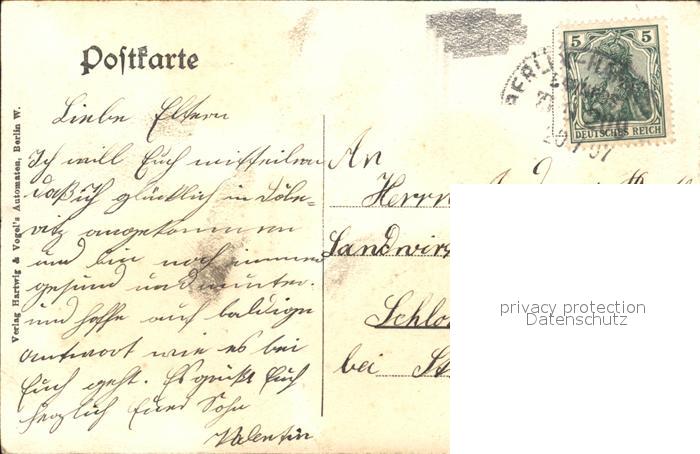 Postkarte
5 5
DEUTSCHES REICH
BERLIN
Liebe Eltern
Ich will Euch mitteilen
daß ich glücklich in Döbe-
ritz angekommen
und bin noch immer
gesund und munter.
und hoffe auf baldige
Antwort wie es bei
Euch geht. Es grüßt Euch
herzlich Euer Sohn
Valentin
An
Herrn
Landwirs
Schlo
bei St
Verlag Hartwig & Vogel's Automaten, Berlin W.
privacy protection
Datenschutz